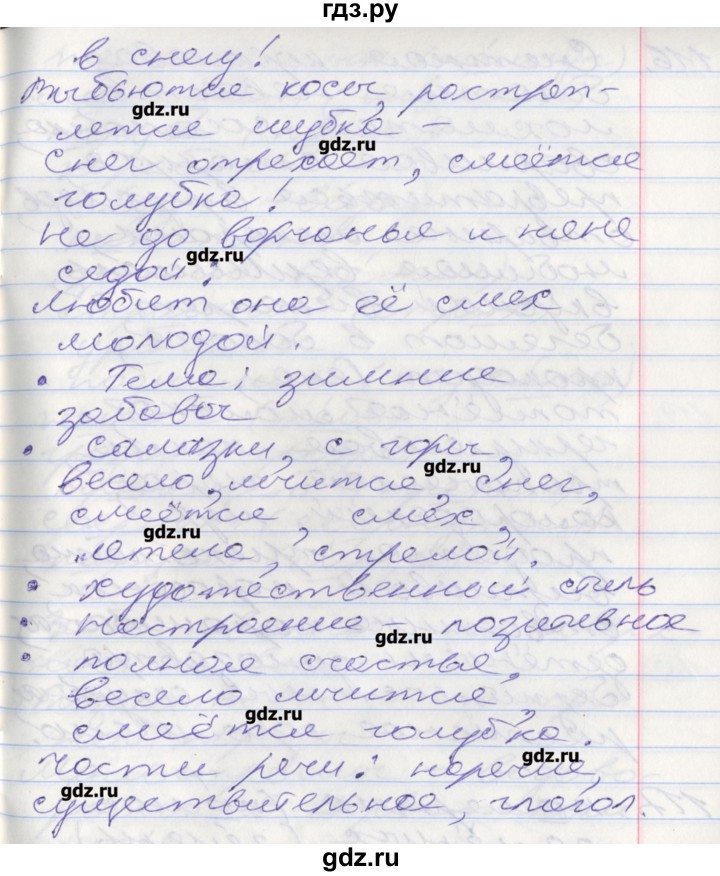 гдз.ру
в снегу!
Выбьются косы, растреп-
лется шубка –
Снег отряхает, смеётся
голубка!
Не до ворчанья и няне
седой:
Любит она её смех
молодой.
• Тема: зимние
забавы
• салазки, с горы,
весело, мчится, снег,
смеётся, смех,
летела, стрелой.
• художественный стиль
• настроение – позитивное
• полная счастья,
весело мчится,
смеётся голубка.
Части речи: наречие,
существительное, глагол.
gdz.ru
gdz.ru
gdz.ru
gdz.ru
gdz.ru
gdz.ru
gdz.ru
gdz.ru
gdz.ru
gdz.ru